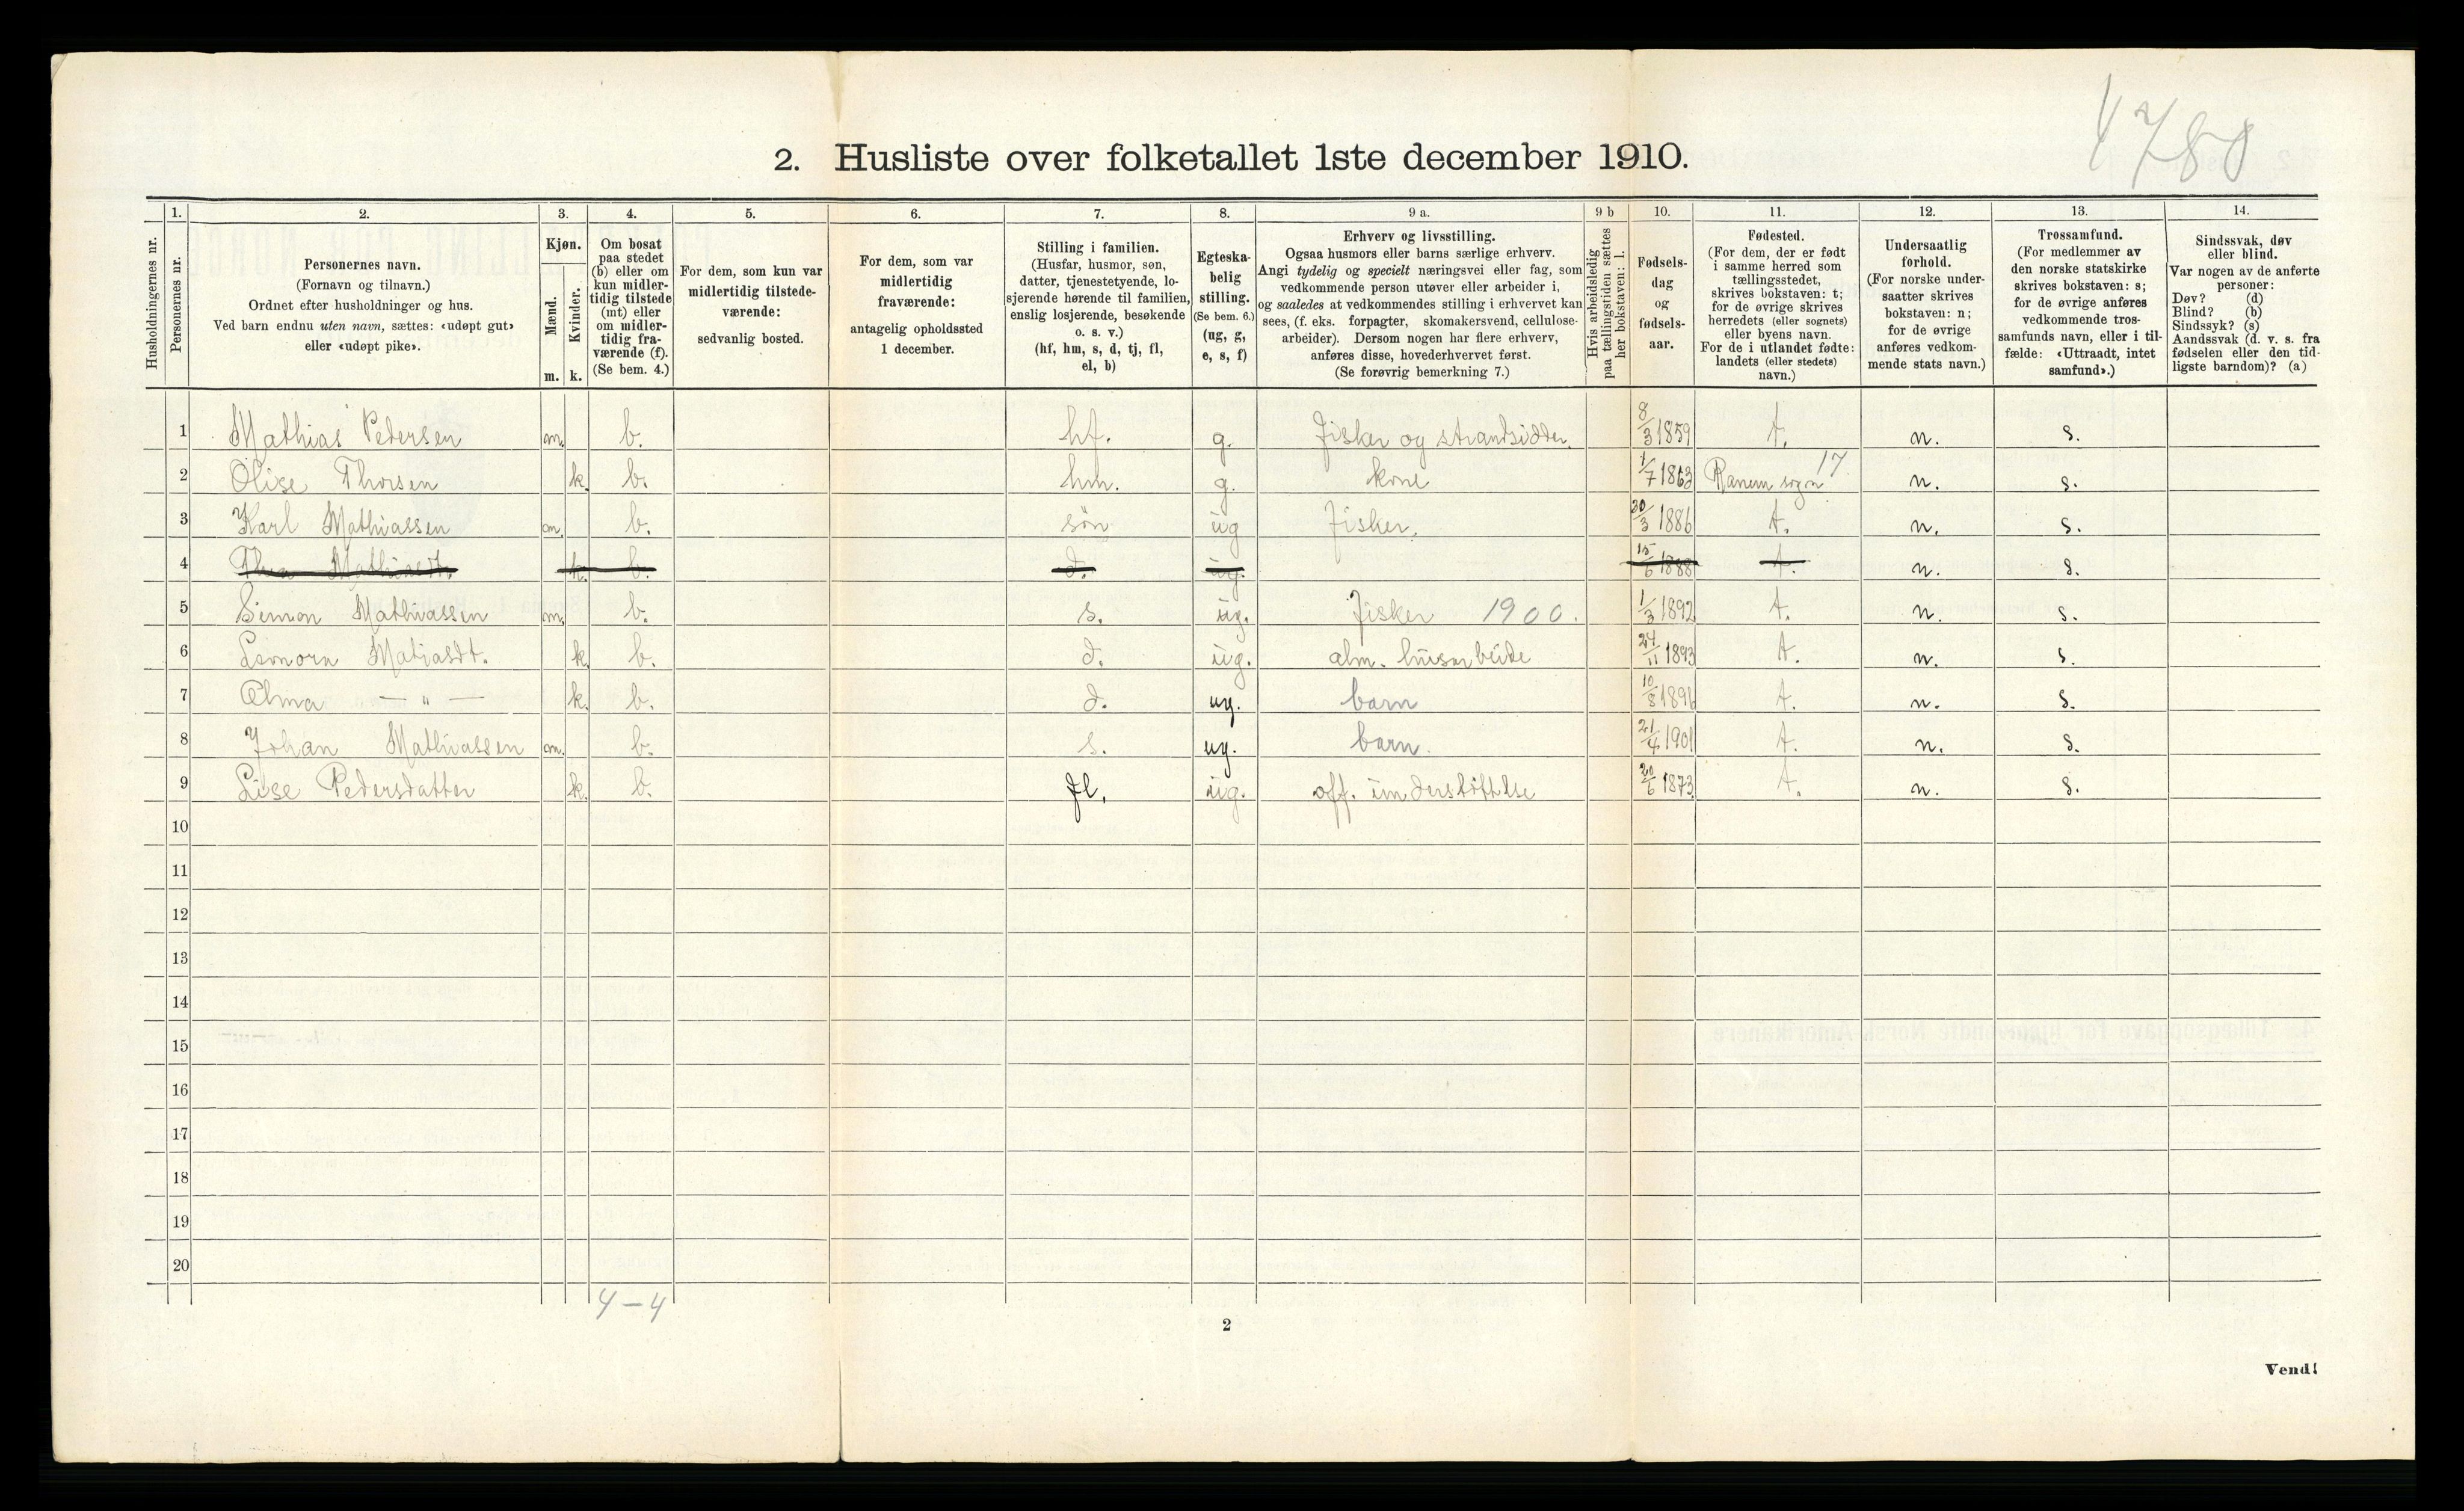 4780
2. Husliste over folketallet 1ste december 1910.
Husholdningernes nr.
1. Personernes nr.
2. Personernes navn.
(Fornavn og tilnavn.)
Ordnet efter husholdninger og hus.
Ved barn endnu uten navn, sættes: «udøpt gut»
eller «udøpt pike».
3. Kjøn.
Mænd. m.
Kvinder. k.
4. Om bosat
paa stedet
(b) eller om
kun midler-
tidig tilstede
(mt) eller
om midler-
tidig fra-
værende (f).
(Se bem. 4.)
5. For dem, som kun var
midlertidig tilstede-
værende:
sedvanlig bosted.
6. For dem, som var
midlertidig
fraværende:
antagelig opholdssted
1 december.
7. Stilling i familien.
(Husfar, husmor, søn,
datter, tjenestetyende, lo-
sjerende hørende til familien,
enslig losjerende, besøkende
o. s. v.)
(hf, hm, s, d, tj, fl,
el, b)
8. Egteska-
belig
stilling.
(Se bem. 6.)
(ug, g,
e, s, f)
9 a. Erhverv og livsstilling.
Ogsaa husmors eller barns særlige erhverv.
Angi tydelig og specielt næringsvei eller fag, som
vedkommende person utøver eller arbeider i,
og saaledes at vedkommendes stilling i erhvervet kan
sees, (f. eks. forpagter, skomakersvend, cellulose-
arbeider). Dersom nogen har flere erhverv,
anføres disse, hovederhvervet først.
(Se forøvrig bemerkning 7.)
9 b Hvis arbeidsledig
paa tællingstiden sættes
her bokstaven: l.
10. Fødsels-
dag
og
fødsels-
aar.
11. Fødested.
(For dem, der er født
i samme herred som
tællingsstedet,
skrives bokstaven: t;
for de øvrige skrives
herredets (eller sognets)
eller byens navn.
For de i utlandet fødte:
landets (eller stedets)
navn.)
12. Undersaatlig
forhold.
(For norske under-
saatter skrives
bokstaven: n;
for de øvrige
anføres vedkom-
mende stats navn.)
13. Trossamfund.
(For medlemmer av
den norske statskirke
skrives bokstaven: s;
for de øvrige anføres
vedkommende tros-
samfunds navn, eller i til-
fælde: «Uttraadt, intet
samfund».)
14. Sindssvak, døv
eller blind.
Var nogen av de anførte
personer:
Døv? (d)
Blind? (b)
Sindssyk? (s)
Aandssvak (d. v. s. fra
fødselen eller den tid-
ligste barndom)? (a)
1 Mathias Pedersen m. b. hf. g. Fisker og strandsidder. 8/3 1859 t. n. s.
2 Olise Thorsen k. b. hm. g. kone 1/7 1863 Ranem sogn 17 n. s.
3 Karl Mathiassen m. b. søn ug Fisker. 30/3 1886 t. n. s.
4 Mathiasdt. k. b. d. ug. 15/6 1888 t. n. s.
5 Simon Mathiassen m. b. s. ug. Fisker 1900. 1/3 1892 t. n. s.
6 Lenora Matiasdt. k. b. d. ug. alm. husarbeide 24/11 1893 t. n. s.
7 Alma — " — k. b. d. ug. barn 10/8 1896 t. n. s.
8 Johan Mathiassen m. b. s. ug. barn. 21/4 1901 t. n. s.
9 Lise Pedersdatter k. b. fl. ug. off. understøttelse 20/6 1873. t. n. s.
10
11
12
13
14
15
16
17
18
19
20
4 – 4
2
Vend!